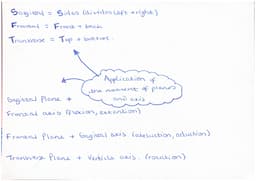 Sagittal = Sides (divides left + right)
Frontal = Front + back
Transverse = Top + bottom.
Application of
the movement of planes
and axis
Sagittal Plane +
Frontal axis (flexion, extension)
Frontal Plane + Sagittal axis (abduction, adduction)
Transverse Plane + Vertical axis. (rotation)